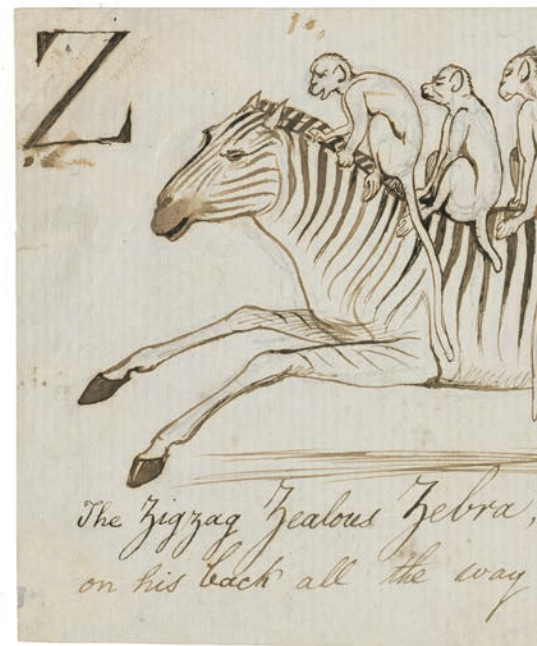 Z
The Zigzag Zealous Zebra,
on his back all the way